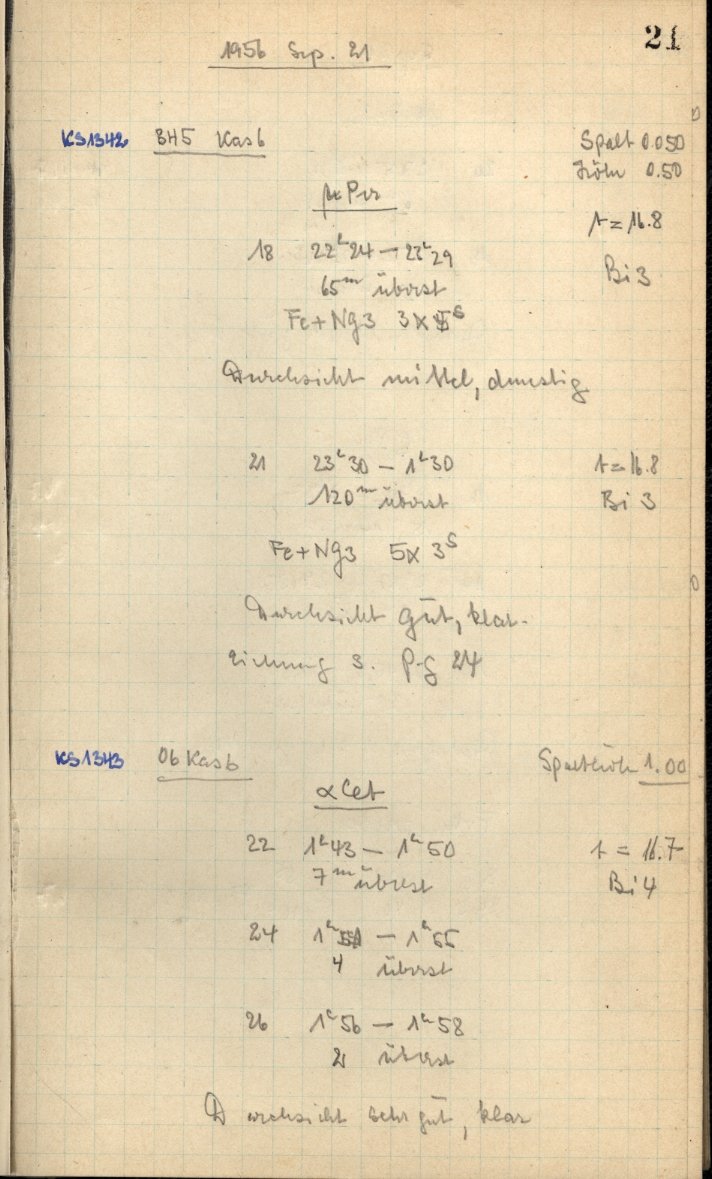 21
1956 Sep. 21
KS1342 BH5 Kas b Spalt 0.050
Höhe 0.50
Per
t = 16.8
18 22h 24 — 23h 29
Bi 3
65m überst
Fe+Ng3 3x 5s
Durchsicht mittel, dunstig
21 23h 30 — 1h 30 t = 16.8
120m überst Bi 3
Fe+Ng3 5x 3s
Durchsicht gut, klar.
Eichung s. Pg 24
KS1343 Ob Kas b Spalthöhe 1.00
α Cet
22 1h 43 — 1h 50 t = 16.7
7m überst Bi 4
24 1h 51 — 1h 55
4 überst
26 1h 56 — 1h 58
2 überst
Durchsicht sehr gut, klar